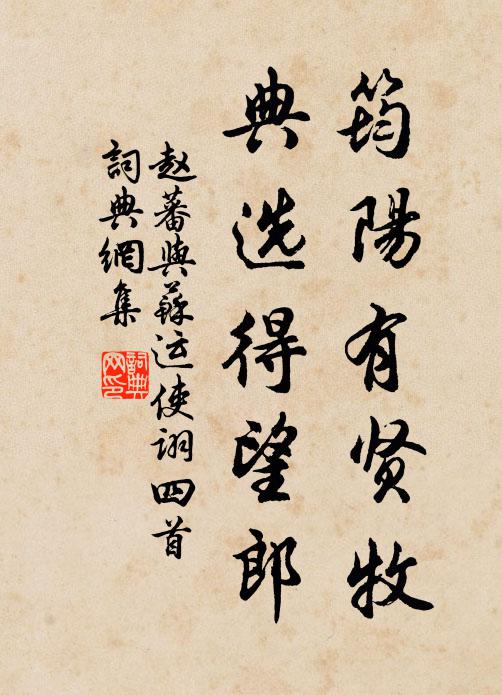 筠陽有贤牧
典选得望郎
赵蕃與蘇运使诩四首
詞典網集
詞典网印